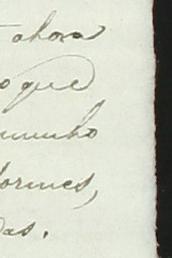 ahora
o que
ormes,
das.